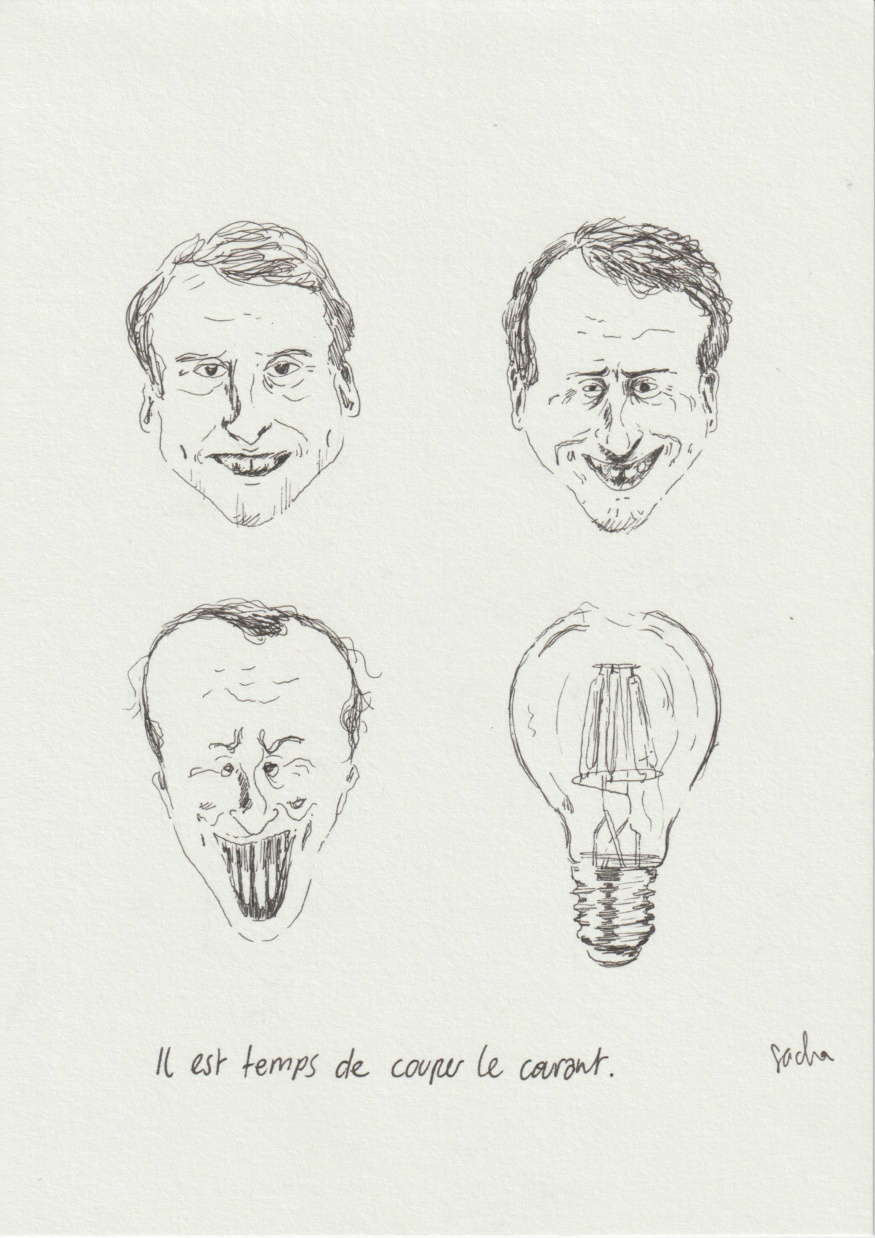 Il est temps de couper le courant.
Sacha